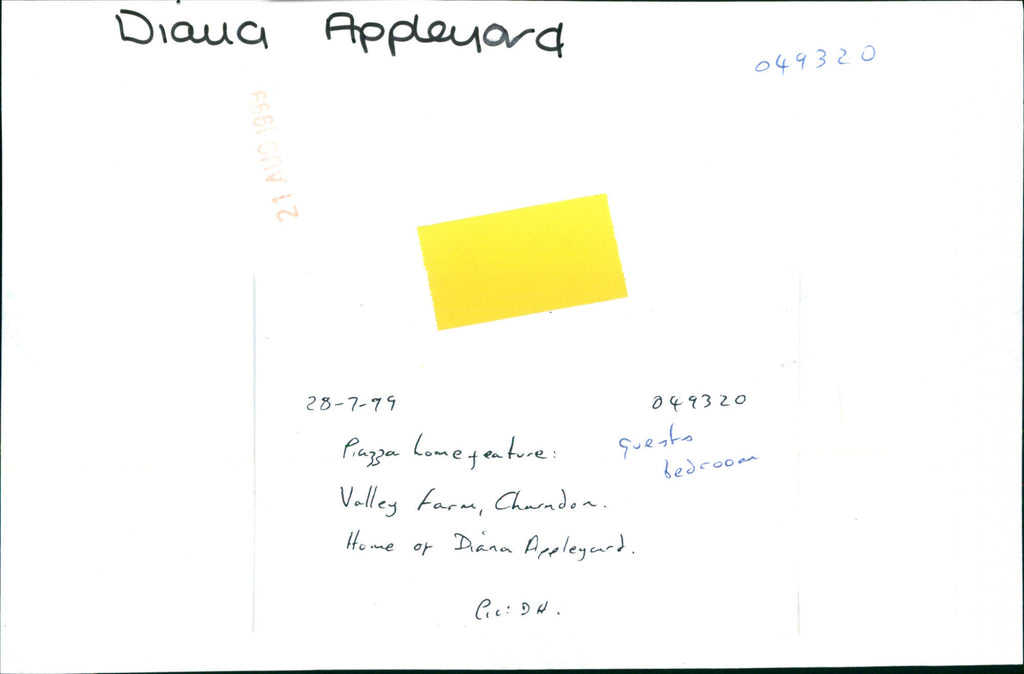 Diana Appleyard
049320
21 AUG 1999
28-7-99 049320
Piazza home feature: guests
bedroom
Valley Farm, Charndon.
Home of Diana Appleyard.
Pic: DH.